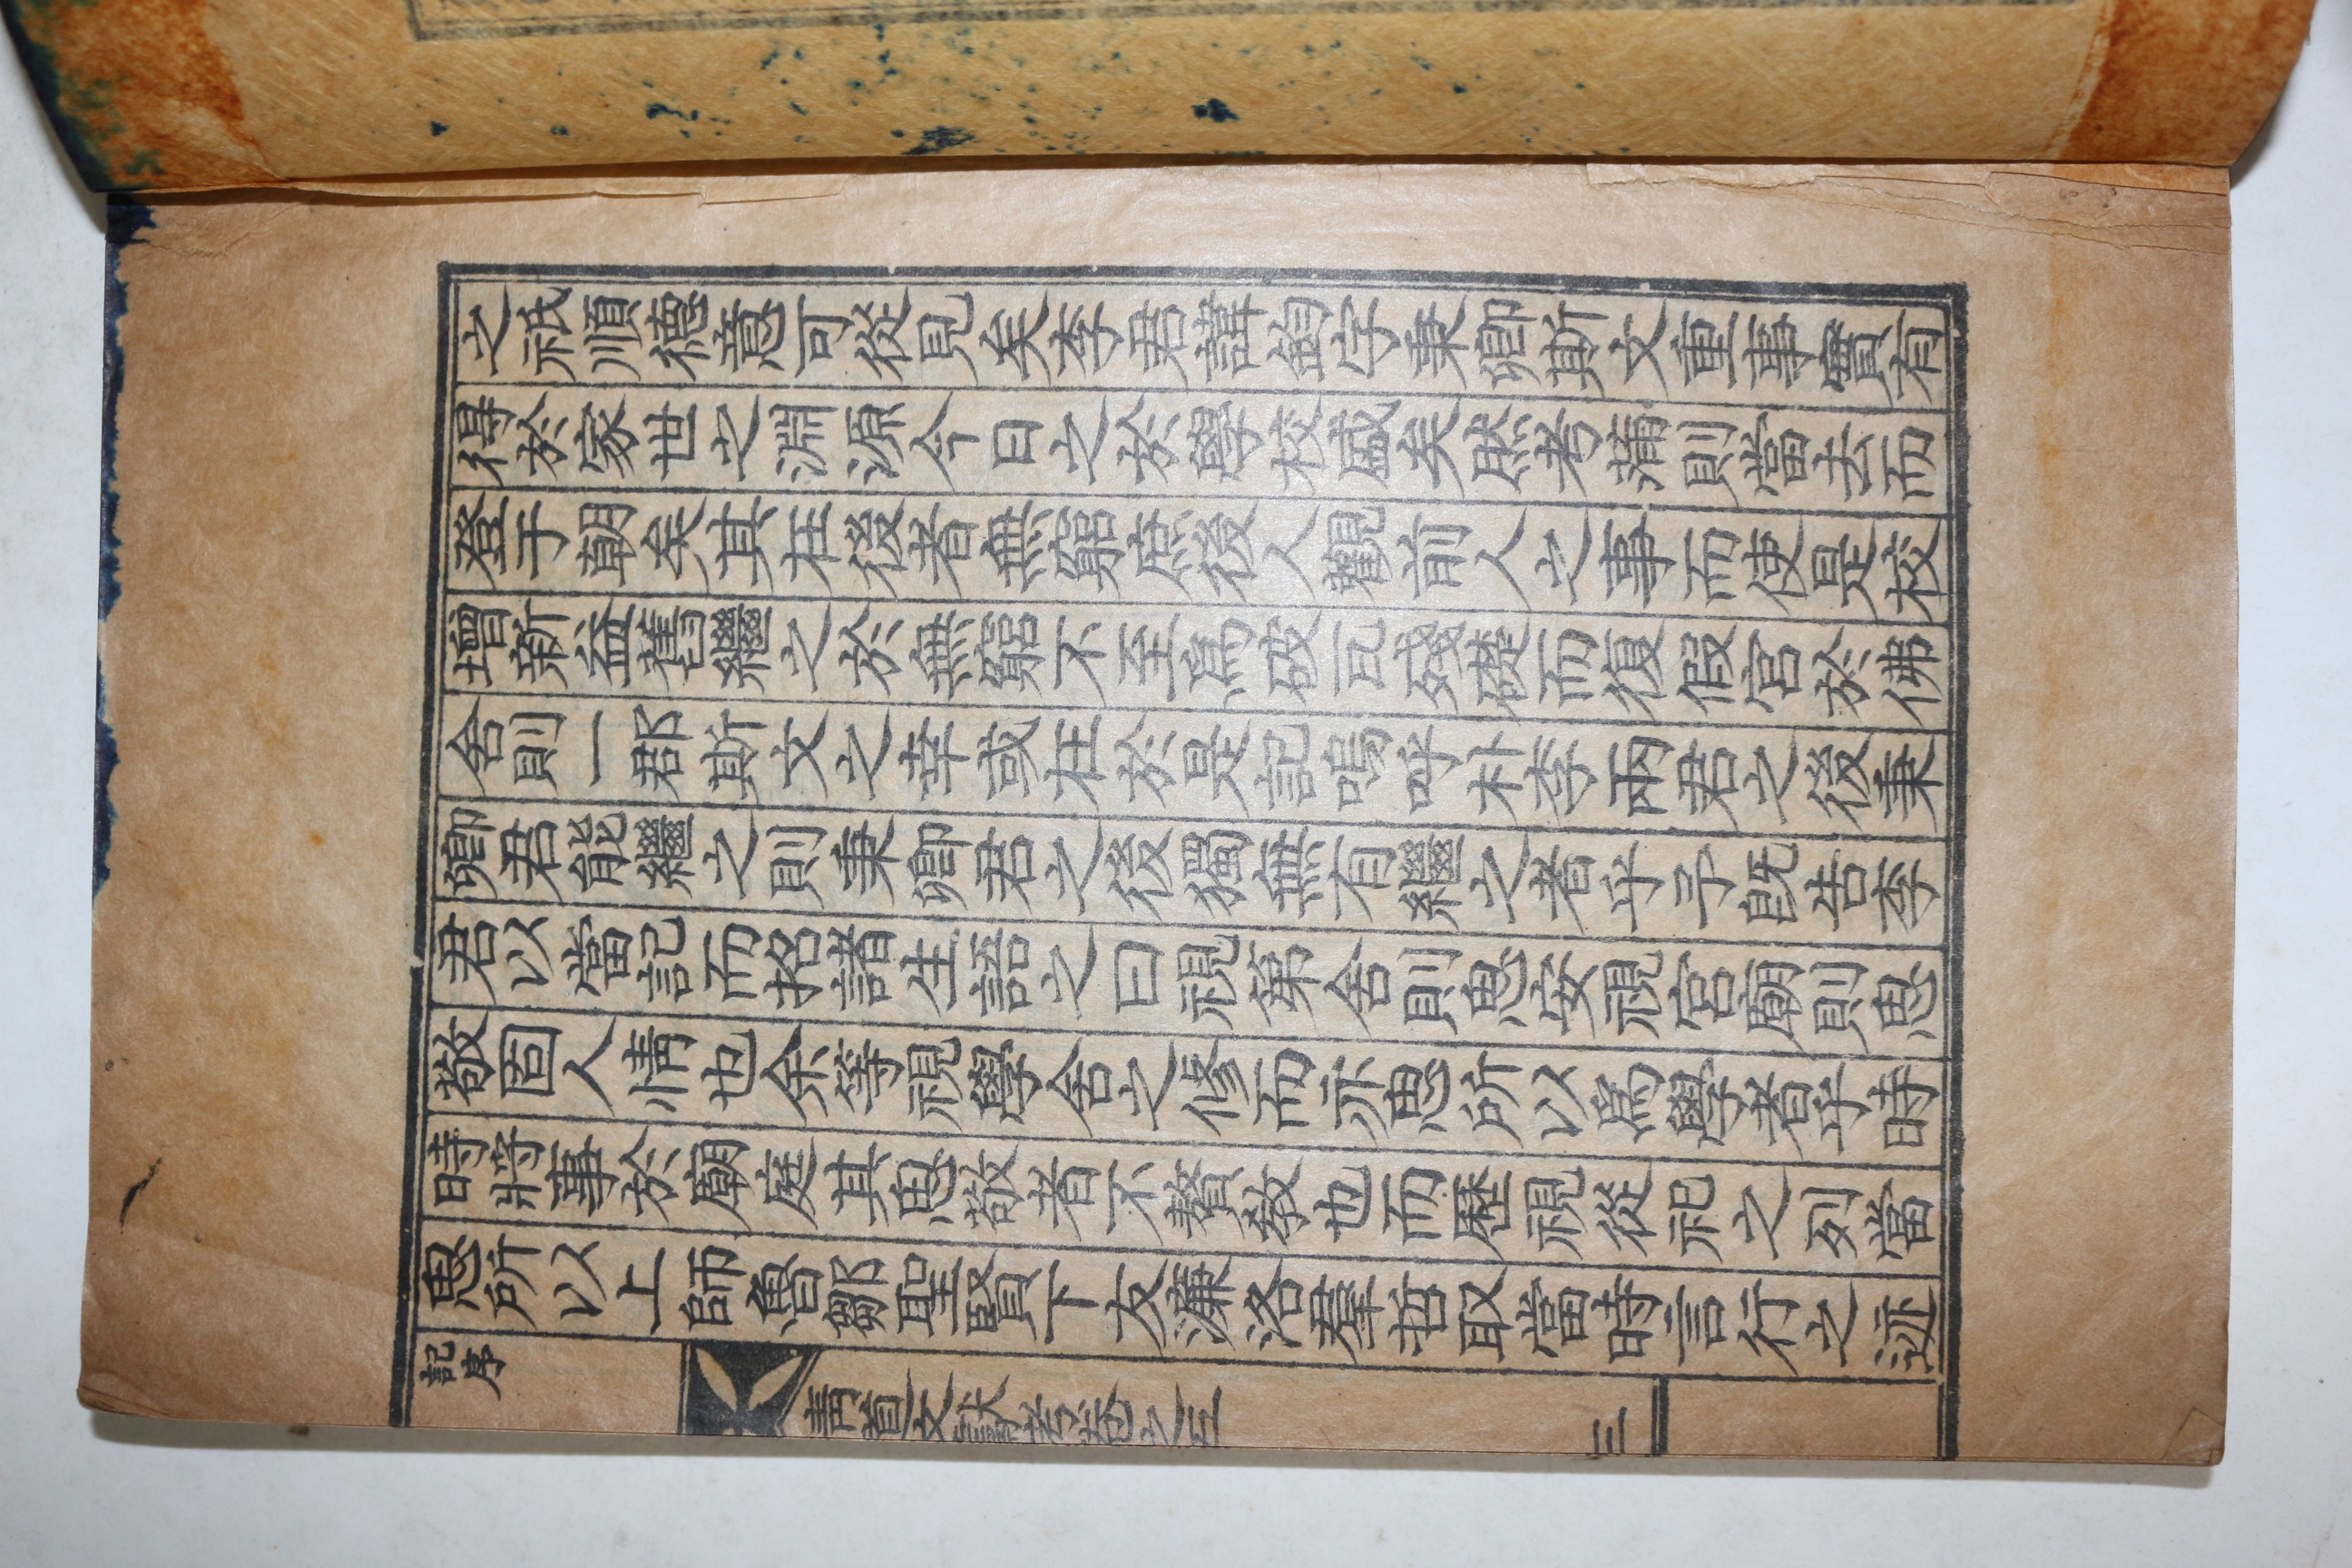 之祇順德意可從見矣李君諱鈞字秉卿斯文重事實有
得於家世之淵源今日之於學校盛矣然考蒲則當去而
登于朝矣其在後者無窮庶後人觀前人之事而使是校
增新益舊繼之於無窮不至爲破瓦殘礎而復假宮於佛
舍則一郡斯文之幸或在於是記嗚呼朴李兩君之後秉
卿君能繼之則秉卿君之後獨無有繼之者乎予旣告李
君以當記而招諸生語之曰視第舍則思安視宮廟則思
敬固人情也余等視學舍之修而亦思所以爲學者乎時
時將事於廟庭其思敬者不贅敎也而歷視從祀之列當
思所以上師魯鄒聖賢下友濂洛羣哲取當時言行之迹
記序
淸道文獻考卷之五
三